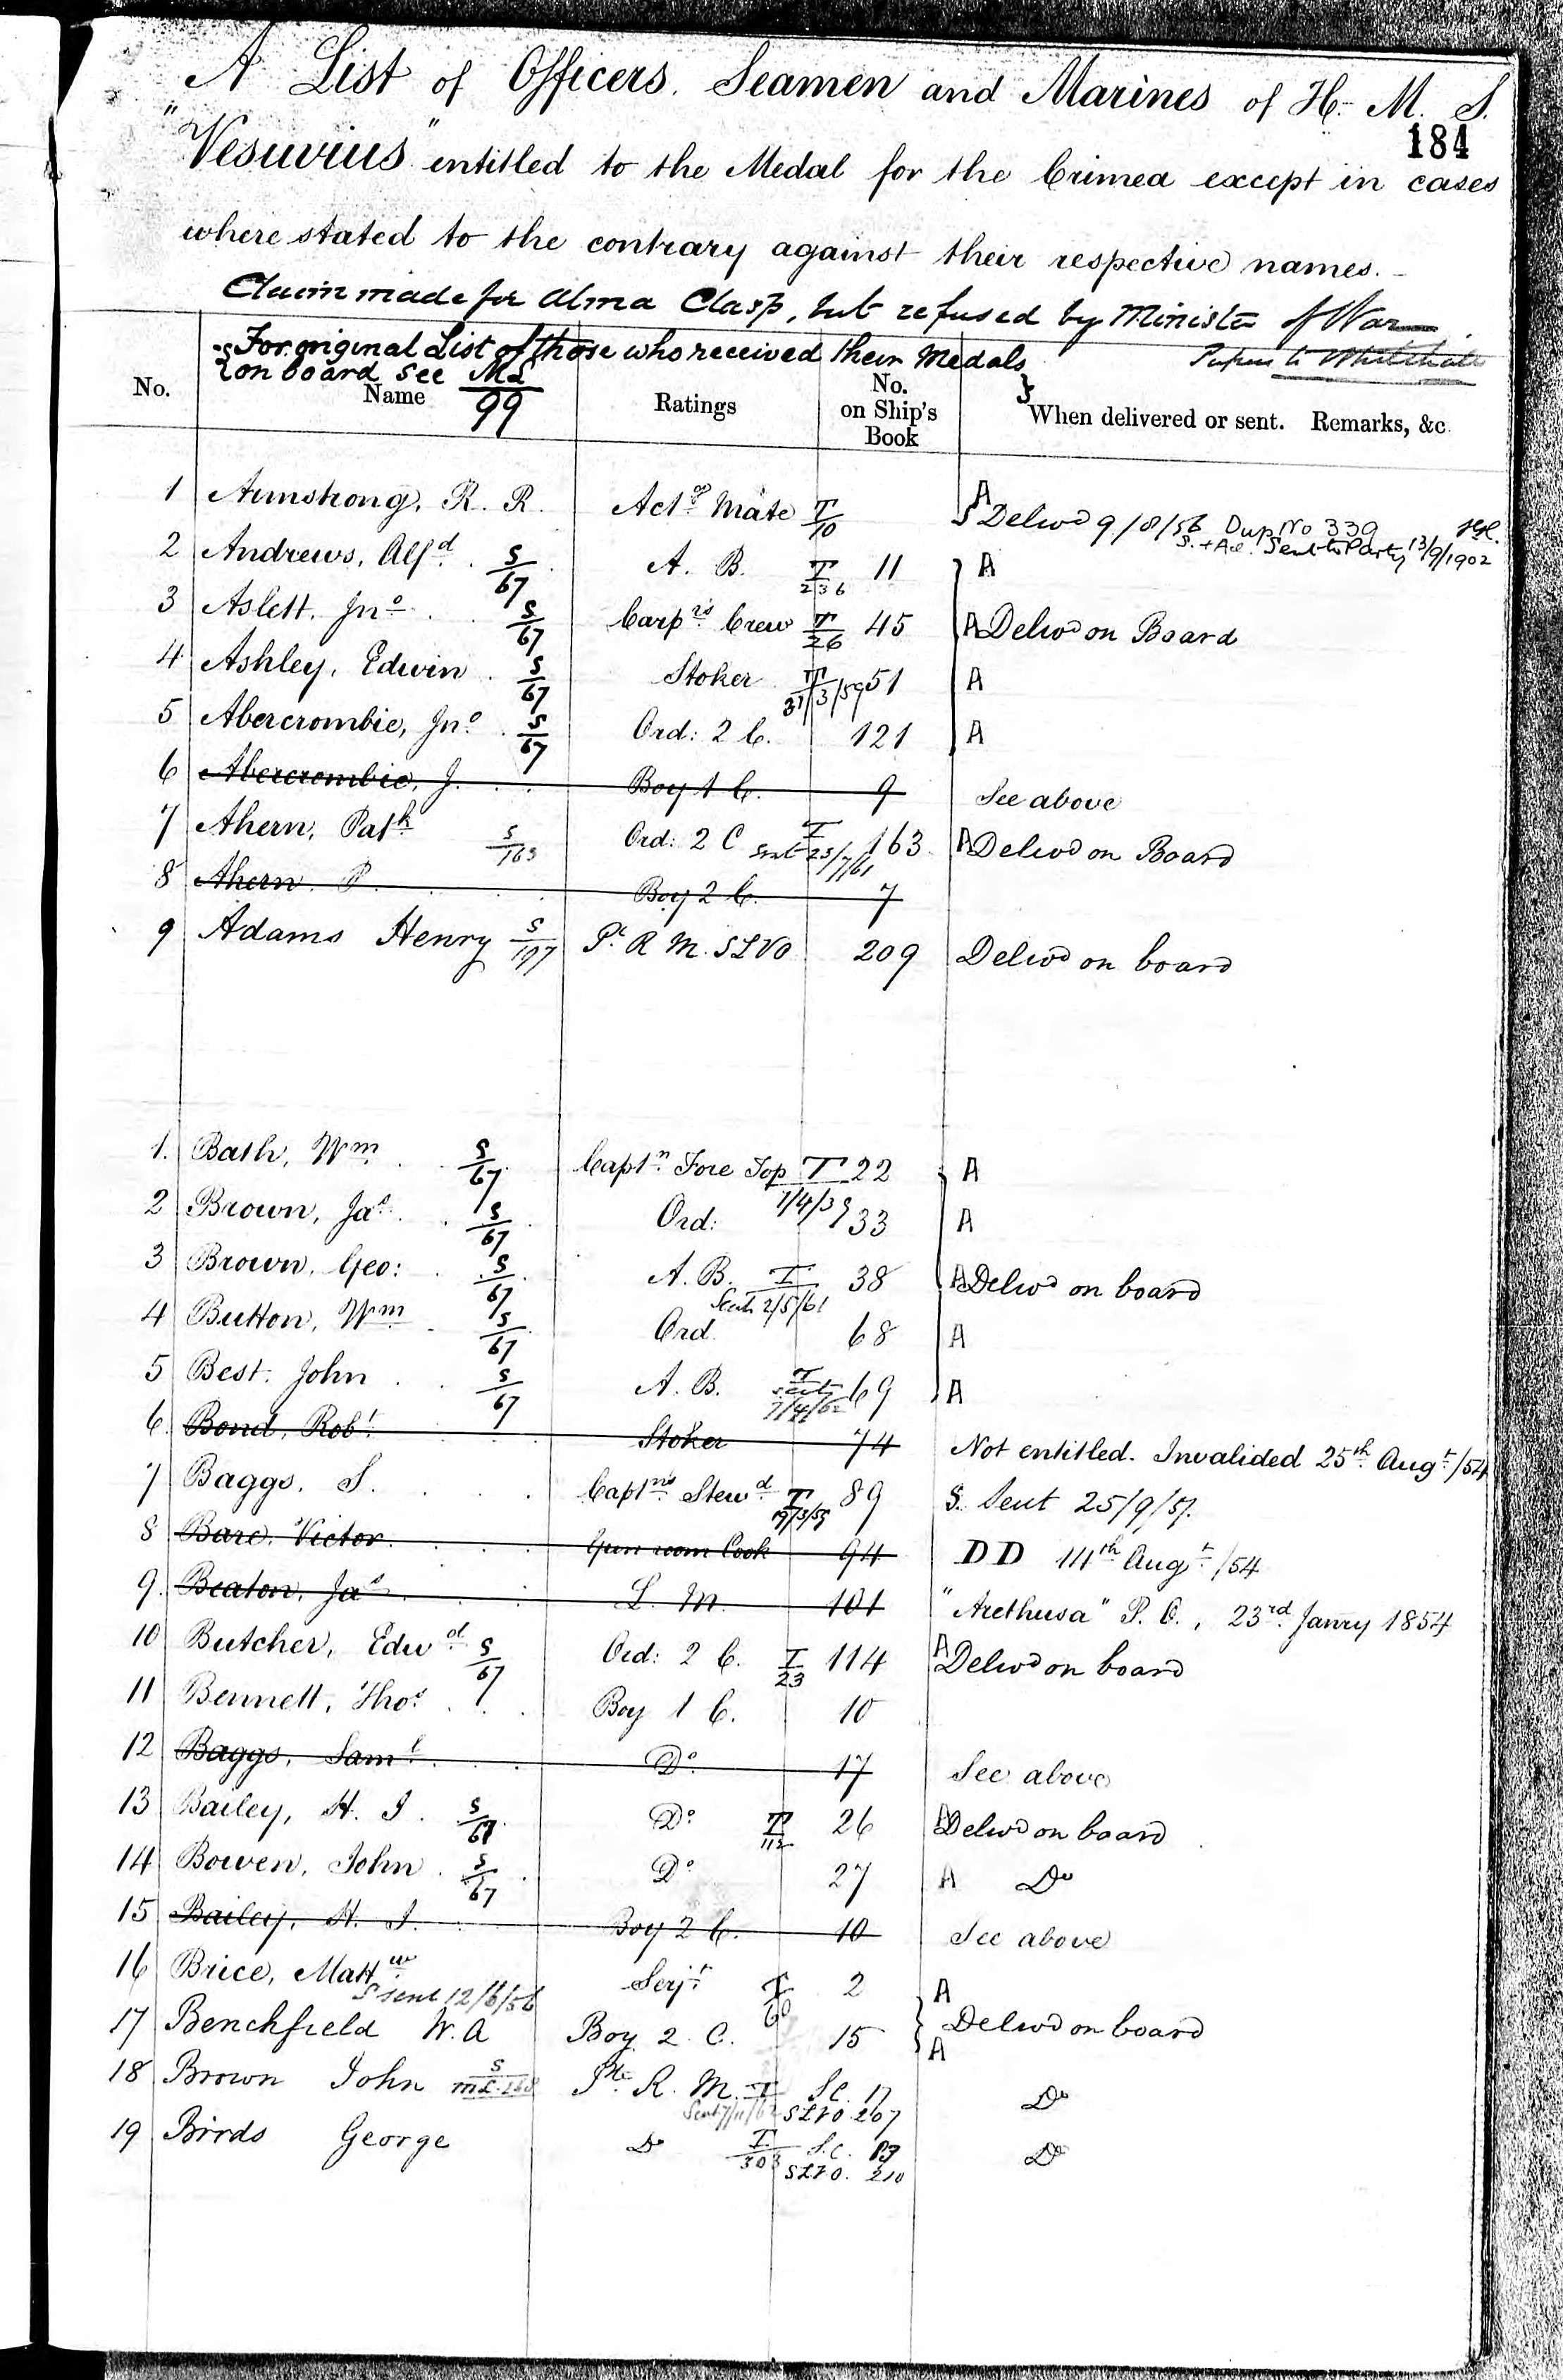 A List of Officers. Seamen and Marines of H. M. S.
184
"Vesuvius" entitled to the Medal for the Crimea except in cases
where stated to the contrary against their respective names. -
Claim made for Alma Clasp, but refused by Minister of War
For original List of those who received their Medals
on board see ML/99
Papers to Whitehall
No. Name Ratings No. on Ship's Book When delivered or sent. Remarks, &c.
1 Armstrong, R. R. Actg Mate T/10 A S Delivd 9/8/56 Dup No 339
S. + Az. Sent to Party 13/9/1902
2 Andrews, Alfd S/67 A. B. T/236 11 A
3 Aslett, Jno S/67 Carprs Crew T/26 45 A Delivd on Board
4 Ashley, Edwin S/67 Stoker T 31/3/59 51 A
5 Abercrombie, Jno S/67 Ord: 2 C. 121 A
6 Abercrombie, J. Boy 1 C. 9 See above
7 Ahern, Patk S/163 Ord: 2 C T Sent 25/7/61 163 A Delivd on Board
8 Ahern P. Boy 2 C. 7
9 Adams Henry S/197 Pt R M. SLVO 209 Delivd on board
1. Bath, Wm S/67 Captn Fore Top T 1/4/59 22 A
2 Brown, Jas S/67 Ord: 33 A
3 Brown, Geo: S/67 A. B. T Sent 2/5/61 38 A Delivd on board
4 Button, Wm S/67 Ord 68 A
5 Best. John S/67 A. B. T sent 7/4/62 69 A
6. Bond, Robt Stoker 74 Not entitled. Invalided 25th Augt/54
7 Baggs, S. Captns Stewd T 19/3/59 89 S. Sent 25/9/57.
8 Bare, Victor Gun room Cook 94 DD 14th Augt/54
9. Beaton, Jas L. M. 101 "Arethusa" P. O., 23rd Janry 1854
10 Butcher, Edwd S/67 Ord: 2 C. T/23 114 A Delivd on board
11 Bennett, Thos Boy 1 C. 10
12 Baggs, Saml Do 17 See above
13 Bailey, H. J. S/67 Do T/112 26 A Delivd on board
14 Bowen, John S/67 Do 27 A Do
15 Bailey, H. J. Boy 2 C. 10 See above
16 Brice, Mattw Serjt T/60 2 A
S sent 12/6/56
17 Benchfield W. A Boy 2 C. 15 Delivd on board
A
18 Brown John S/ML 168 Pte R. M. T Sent 7/11/62 SC. 17 SLVO 207 Do
19 Birds George Do T/303 S.C. SLVO. 210 Do